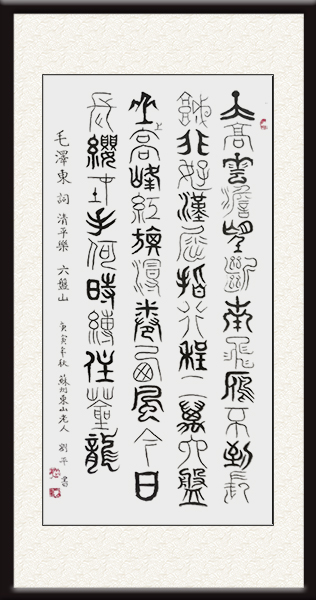 天高雲澹望斷南飛雁不到長
城非好漢屈指行程二萬六盤
山上高峰紅旗漫卷西風今日
長纓在手何時縛住蒼龍
毛澤東詞清平樂 六盤山
庚寅年秋 蘇州東山老人 劉平書